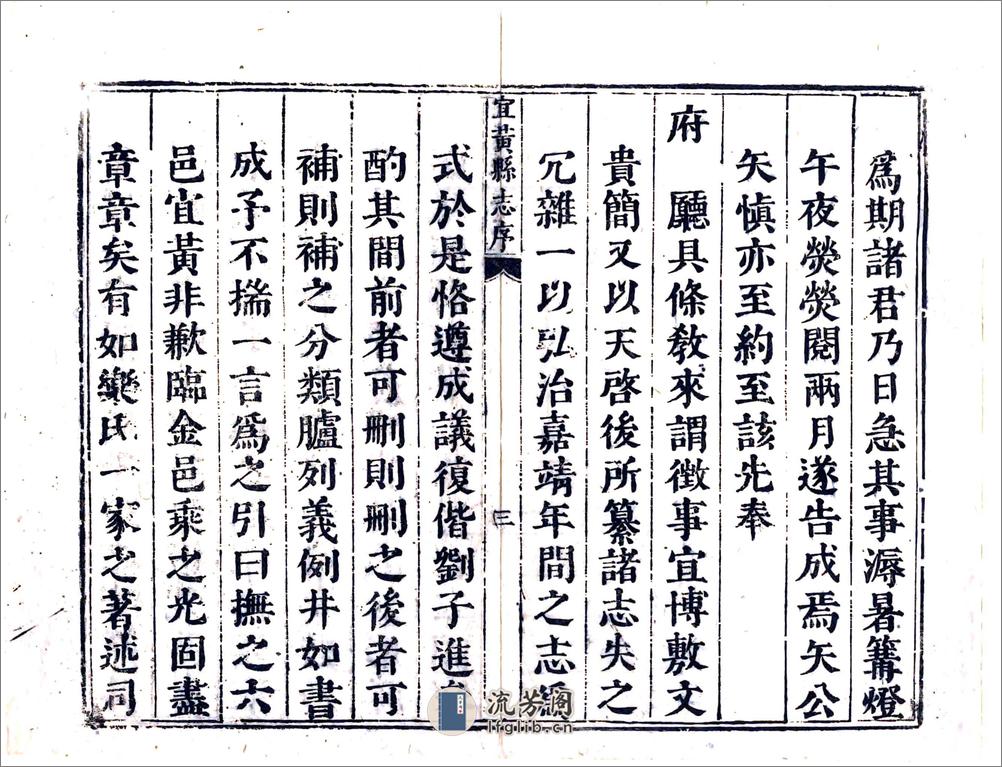 爲期諸君乃日急其事溽暑篝燈
午夜熒熒閱兩月遂告成焉矢公
矢愼亦至約至該先奉
府 廳具條敎來謂徵事宜博敷文
貴簡又以天啓後所纂諸志失之
冗雜一以弘治嘉靖年間之志
宜黃縣志序 三
式於是恪遵成議復偕劉子進
酌其間前者可刪則刪之後者可
補則補之分類臚列義例井如書
成予不揣一言爲之引曰撫之六
邑宜黃非歉臨金邑乘之光固盡
章章矣有如樂氏一家之著述司
流芳阁
lfglib.cn